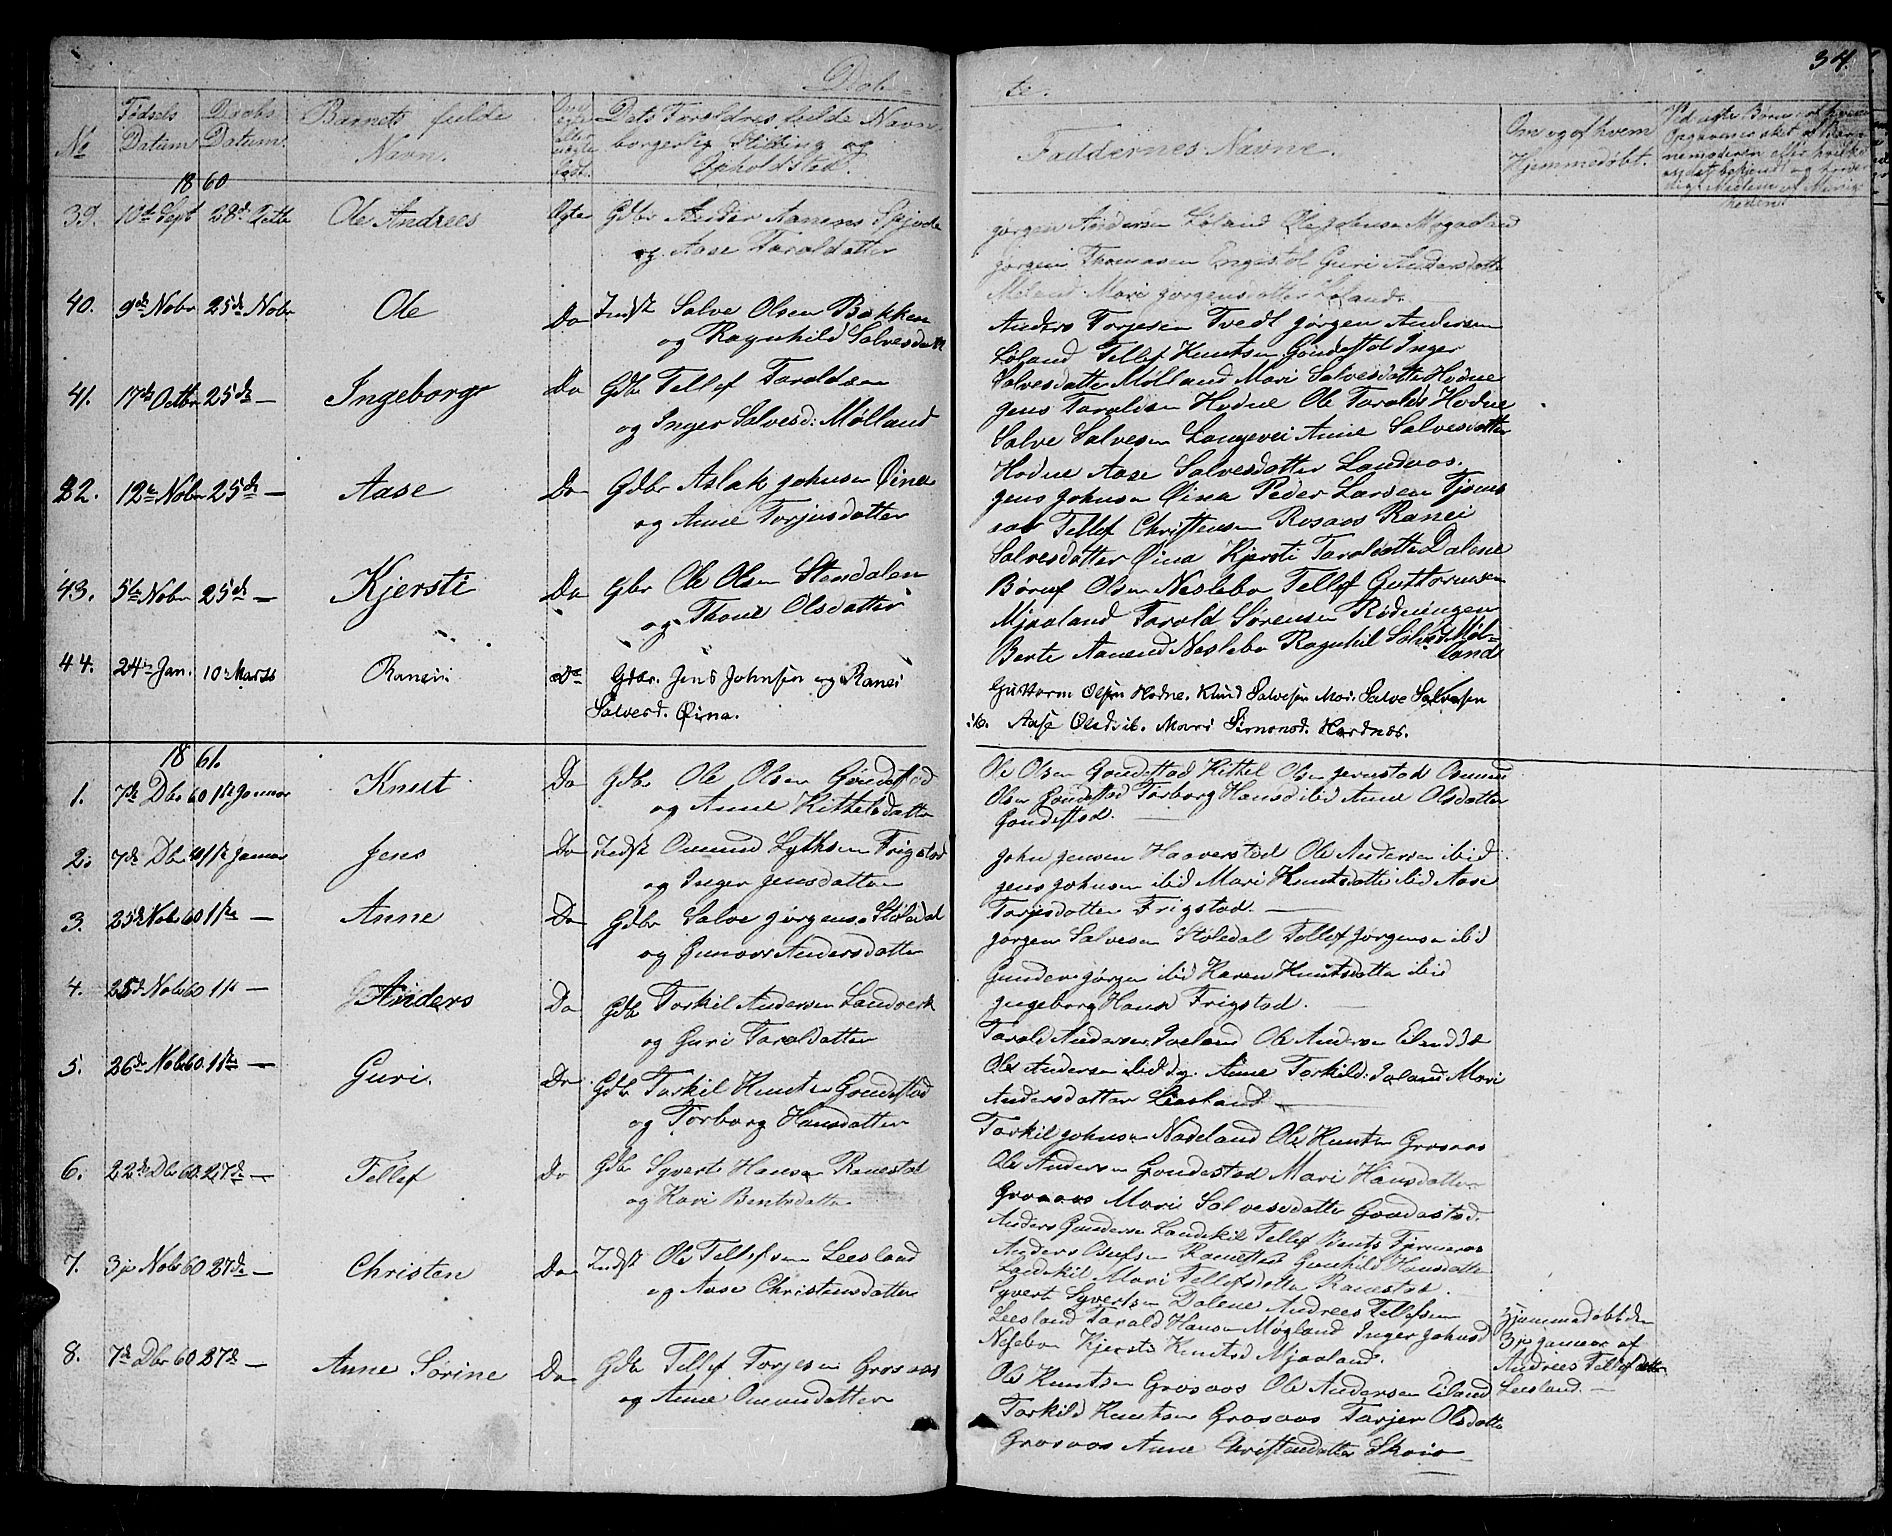 34.
Døb- te.
No
Fødsels Datum
Daabs Datum.
Barnets fulde Navn.
Dets Foreldres fulde Navn borgerlig Stilling og Opholdsted.
Faddernes Navne.
Om og af hvem Hjemmedøbt.
1860
39. 10de Sept 28de Octb Ole Andrees Ægte Gdbr Ander Aanens
og Aase Taroldatter
Jørgen Andersen Løland Ole Johnsen
Jørgen Thomasen Engestøl Guri Andersdatter
Møland Mari Jørgensdatter Løland.
40. 9de Nobr 25de Nobr Ole Do Indst Salve Olsen Bakken
og Ragnhild Salvesdatter
Anders Torjesen Tvedt Jørgen Andersen
Løland Tellef Knutsen Gondestol Inger
Salvesdatter Mølland Mari Salvesdatter Hodne
41. 17de Octbr 25de — Ingeborg Do Gdb Tellef Taroldsen
og Inger Salvesd: Mølland
Jens Taroldsen Hodne Ole Tarolds Hodne
Salve Salvesen Langevei Anne Salvesdatter
Hodne Aase Salvesdatter Landaas.
22. 12te Nobr 25de — Aase Do Gdbr Aslak Johnsen Øina
og Anne Torjusdatter
Jens Johnsen Øina Peder Larsen Tjoms
aas Tellef Christensen Rosaas Ranei
Salvesdatter Øina Kjersti Taroldatter Dalene
43. 5te Nobr 25de — Kjersti Do Gbr Ole Olsen Stendalen
og Thone Olsdatter
Børuf Olsen Neslebo Tellef Guttormsen
Mjaaland Tarold Sørensen Rødningen
Berte Aanend Neslebo Ragnhil Salvesd Møl-
land
44. 24de Jan. 10de Marts Ranei Do Gdbr. Jens Johnsen og Ranei
Salvesd. Øina.
Guttorm Olsen Hodne. Knud Salvesen Moi. Salve Salvesen
ib. Aase Olsd. ib. Marri Simonsd. Hardnes.
1861.
1. 7de Dbr 60 1ste Januar Knut Do Gdbr Ole Olsen Gondestad
og Anne Kittelsdatter
Ole Olsen Gondestad Kittel Olsen Jernstad Osmund
Olsen Gondestad Torborg Hansd ibid Anne Olsdatter
Gondestad. —
2. 7de Dbr 60 1ste Januar Jens Do Indst Omund Lythsen Frigstad
og Inger Jensdatter
John Jensen Haaverstad Ole Andersen ibid
Jens Johnsen ibid Mari Knutsdatter ibid Aase
Torjisdatter Frigstad. —
3. 25de Nobr 60 1ste — Anne Do Gdbr Salve Jørgens Støledal
og Gunvor Andersdatter
Jørgen Salvesen Støledal Tellef Jørgensen ibid
Gunder Jørgen ibid Karen Knutsdatter ibid
Ingeborg Hans Frigstad. —
4. 25de Nobr 60 1ste — Anders Do Gdb Torkil Andersen Landverk
og Guri Taroldatter
Tarold Andersen Ioeland Ole Andersen
Ole Andersen ibid Anne Torkild: Ioland Mari
Andersdatter Leeland —
5. 26de Nobr 60. 1ste — Guri. Do Gdb Torkil Knutsen Gondestad
og Torborg Hansdatter
Torkil Johnsen Nodeland Ole Knutsen Grosaas
Ole Andersen Gondestad Mari Hansdatter
Grosaas Mari Salvesdatter Gondestad.
6. 22de Dbr 60. 27de — Tellef Do Gdb Syvert Hansen Ranestad
og Kari Bentsdatter
Anders Gundersen Landskil Tellef Bents
Anders Olufsen Ranestad Gunhild Hansdatter
Landskil Mari Tellefsdatter Ranestad.
7. 3je Nobr 60 27de — Christen Do Indst Ole Tellefsen Leesland
og Aase Christensdatter
Syvert Syvertsen Dalene Andrees Tellefsen
Leesland Tarold Hansen Møgland Inger Johnsd
Neslebo Kjersti Knutsd Mjaaland.
Hjemmedøbt den
3je Januar af
Andrees Tellefsen
Leesland. —
8. 7de Dbr 60 27de — Anne Sørine Do Gdb Tellef Torjesen Grosaas
og Anne Omundsdatter
Ole Knutsen Grosaas Ole Andersen Eiland
Torkild Knutsen Grosaas Torjer Olsdatter
Grosaas Anne Christensdatter Skeie —